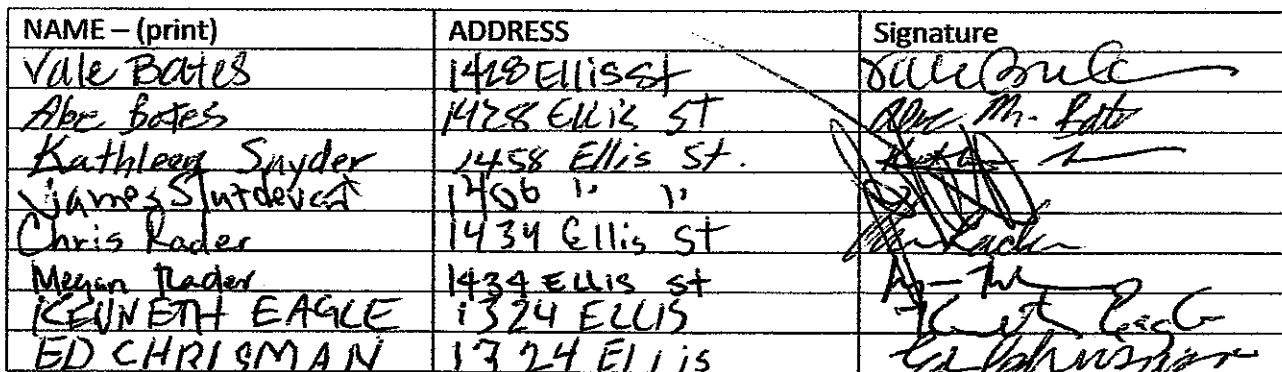 NAME – (print) ADDRESS Signature
Vale Bates 1428 Ellis St
Abe Bates 1428 Ellis St Abe M. Bate
Kathleen Snyder 1458 Ellis St.
James 1406 " "
Chris Rader 1434 Ellis St Rader
Megan Rader 1434 Ellis St
KENNETH EAGLE 1324 ELLIS
ED CHRISMAN 1324 Ellis Ed Chrisman